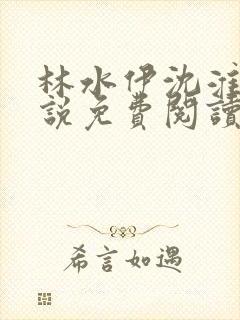 林水伊沈淮
說免費閱讀
希言如遇